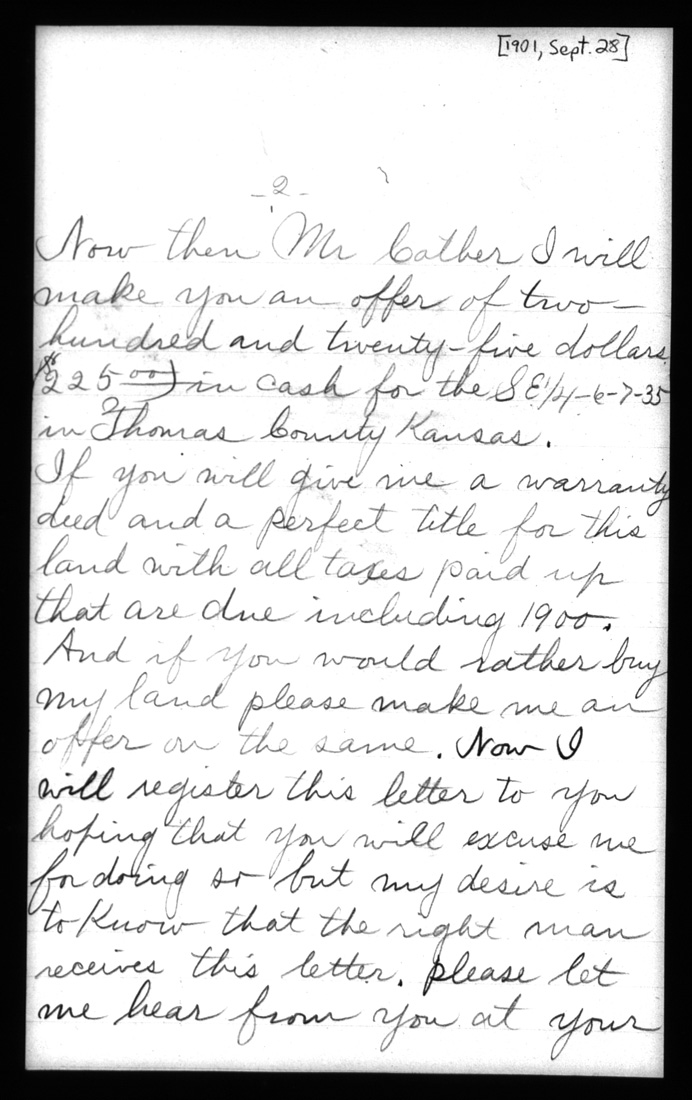 [1901, Sept. 28]
-2-
Now then Mr Cather I will
make you an offer of two-
hundred and twenty-five dollars
($225 00) in cash for the S E 1/4-6-7-35
in Thomas County Kansas.
If you will give me a warranty
deed and a perfect title for this
land with all taxes paid up
that are due including 1900.
And if you would rather buy
my land please make me an
offer on the same. Now I
will register this letter to you
hoping that you will excuse me
for doing so but my desire is
to Know that the right man
receives this letter. please let
me hear from you at your